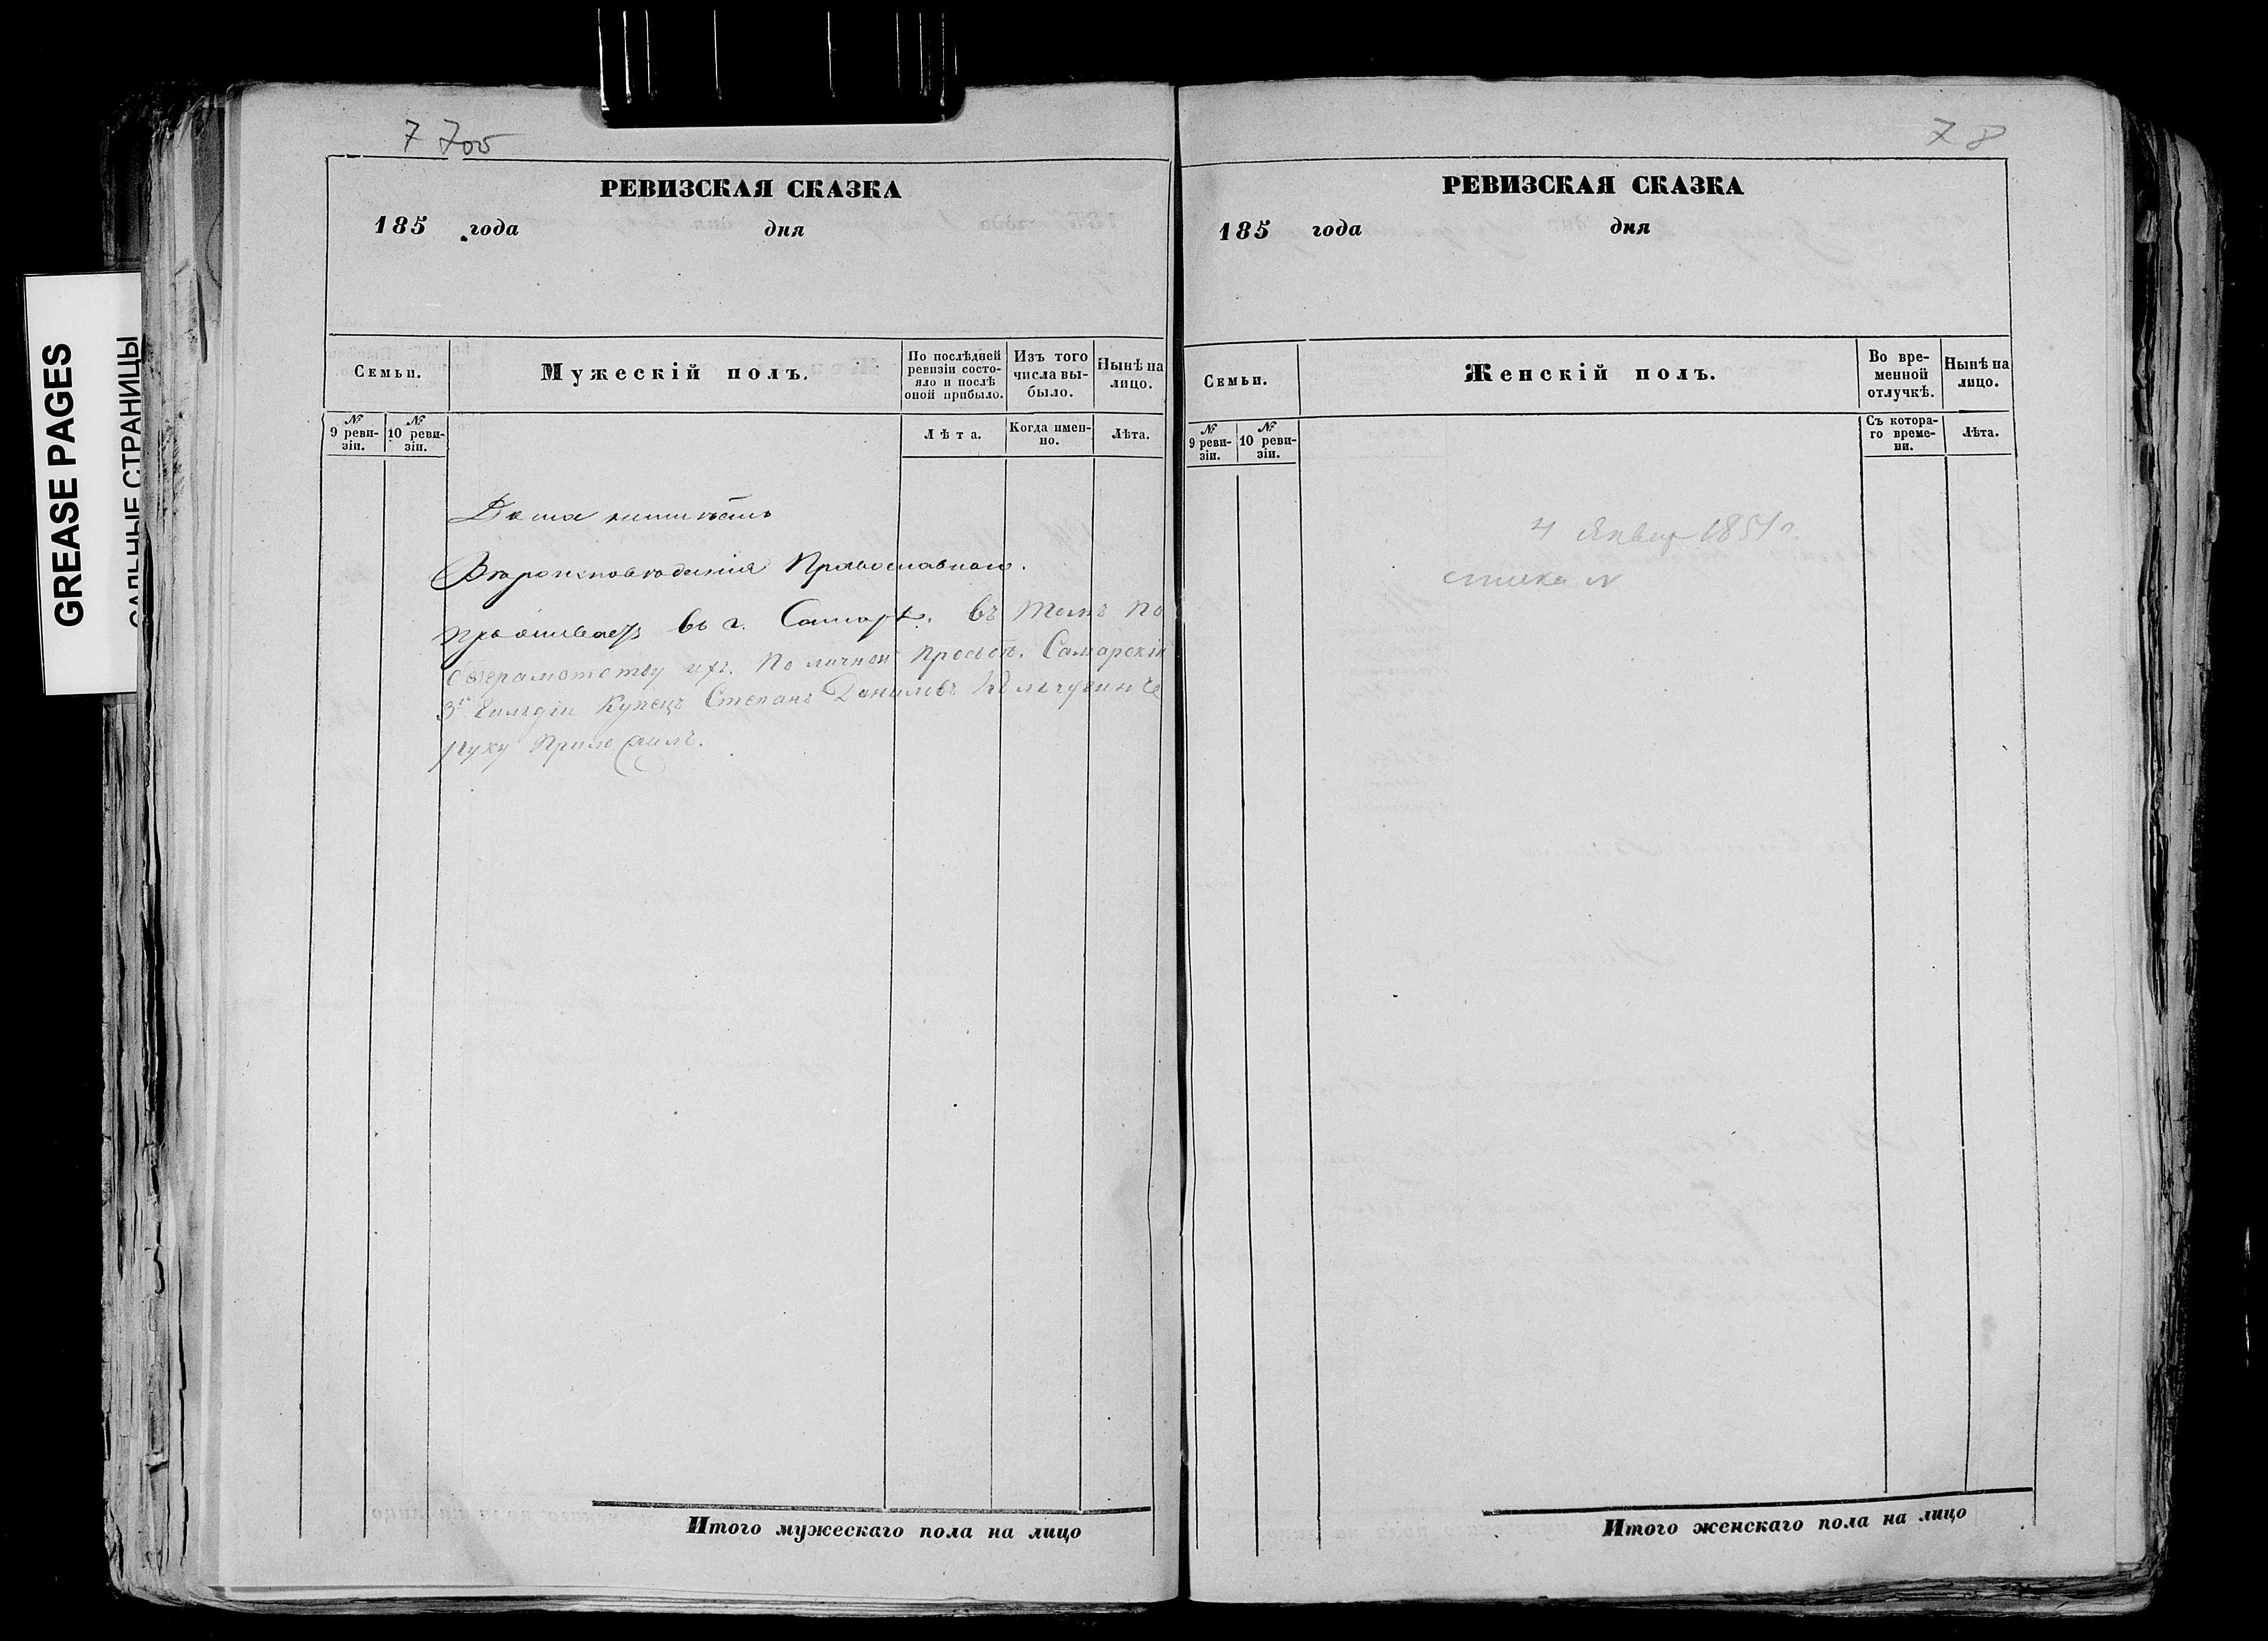 GREASE PAGES
САЛЬНЫЕ СТРАНИЦЫ
7 7об
РЕВИЗСКАЯ СКАЗКА
185 года дня
Семьи.
Мужескій полъ.
По послѣдней ревизіи состояло и послѣ оной прибыло.
Изъ того числа выбыло.
Нынѣ на лицо.
№ 9 ревизіи.
№ 10 ревизіи.
Лѣта.
Когда именно.
Лѣта.
Дома неимѣетъ
Вѣроисповѣданія Православнаго.
Проживаетъ въ г. Самарѣ. Въ томъ по
безграмотству ихъ. По личной прозьбѣ. Самарскій
3й Гильдіи Купецъ Степанъ Данилов
руку приложилъ.
Итого мужескаго пола на лицо
78
РЕВИЗСКАЯ СКАЗКА
185 года дня
Семьи.
Женскій полъ.
Во временной отлучкѣ.
Нынѣ на лицо.
№ 9 ревизіи.
№ 10 ревизіи.
Съ котораго времени.
Лѣта.
4 Январ 1851 г.
Итого женскаго пола на лицо